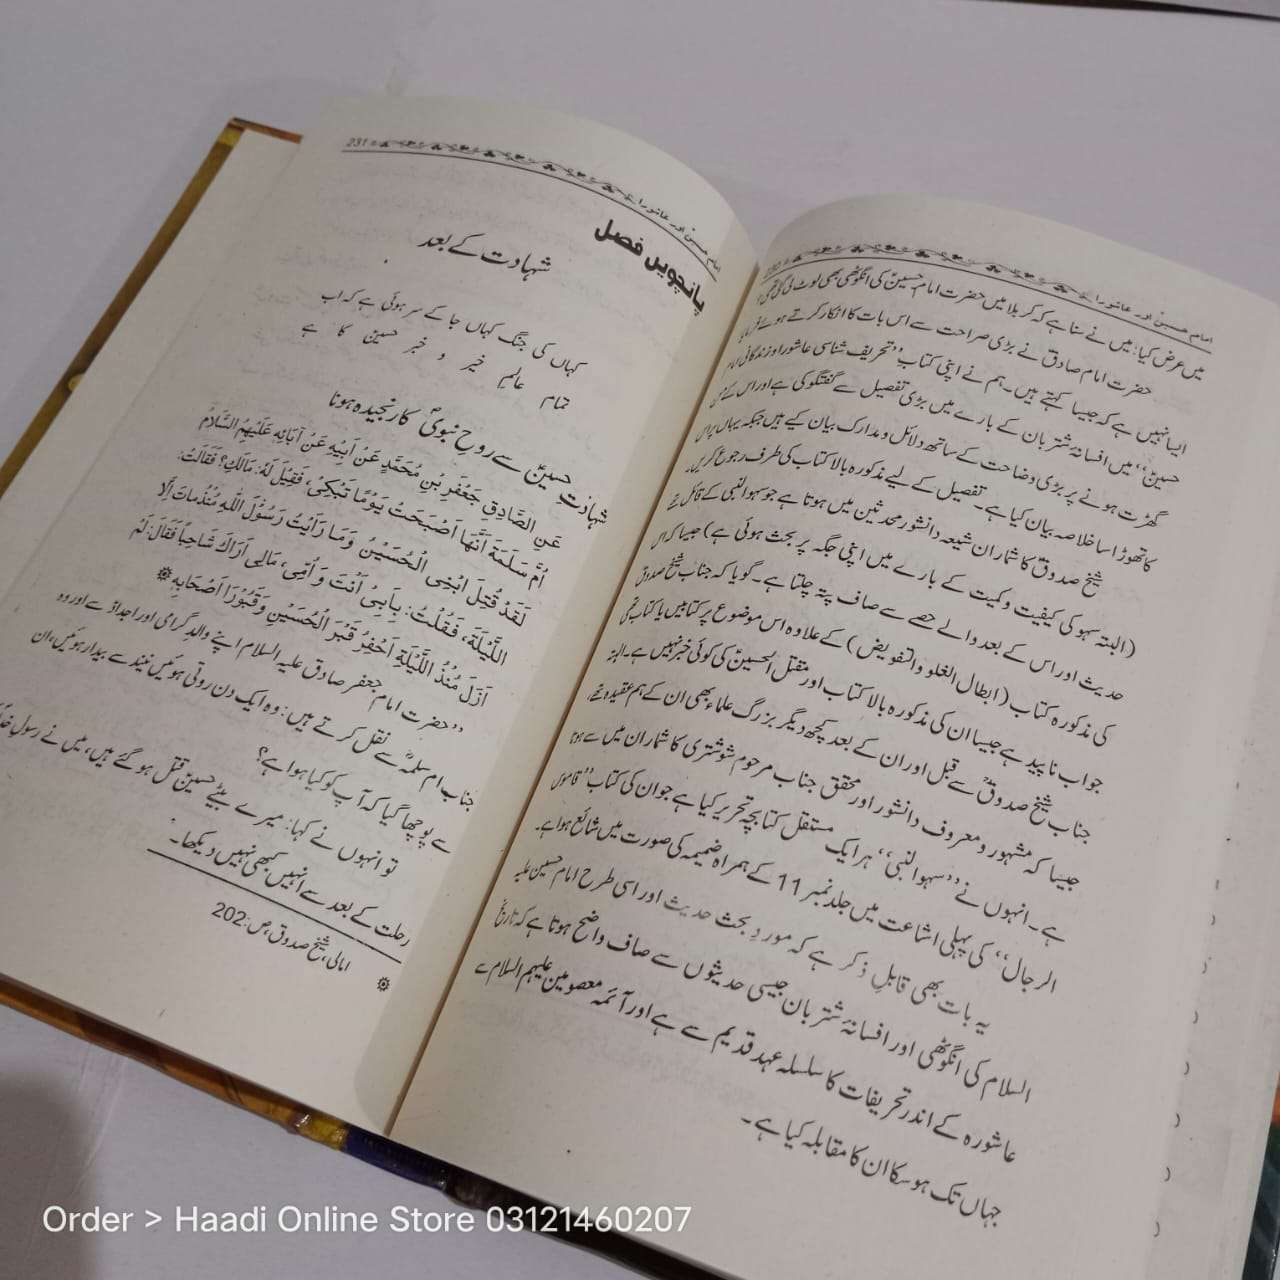 امام حسینؑ اور عاشورا
میں عرض کیا: میں نے سنا ہے کہ کربلا میں حضرت امام حسینؑ کی انگوٹھی بھی لوٹ لی گئی تھی؟
حضرت امام صادقؑ نے بڑی صراحت سے اس بات کا انکار کرتے ہوئے فرمایا
ایسا نہیں ہے کہ جیسا کہتے ہیں۔ ہم نے اپنی کتاب ’’تحریف شناسی عاشورا و زندگانی امام
حسینؑ‘‘ میں افسانۂ شتربان کے بارے میں بڑی تفصیل سے گفتگو کی ہے اور اس کے من
گھڑت ہونے پر بڑی وضاحت کے ساتھ دلائل و مدارک بیان کیے ہیں جبکہ یہاں پر اس
کا تھوڑا سا خلاصہ بیان کیا ہے۔ تفصیل کے لیے مذکورہ بالا کتاب کی طرف رجوع کریں۔
شیخ صدوقؒ کا شمار ان شیعہ دانشور محدثین میں ہوتا ہے جو سہو النبی کے قائل تھے
(البتہ سہو کی کیفیت و کمیت کے بارے میں اپنی جگہ پر بحث ہوئی ہے) جیسا کہ اس
حدیث اور اس کے بعد والے حصے سے صاف پتہ چلتا ہے۔ گویا کہ جناب شیخ صدوق
کی مذکورہ کتاب (ابطال الغلو والتفویض) کے علاوہ اس موضوع پر کتابیں یا کتاب تھی
جو اب ناپید ہے جیسا ان کی مذکورہ بالا کتاب اور مقتل الحسینؑ کی کوئی خبر نہیں ہے۔ البتہ
جناب شیخ صدوقؒ سے قبل اور ان کے بعد کچھ دیگر بزرگ علماء بھی ان کے ہم عقیدہ تھے،
جیسا کہ مشہور و معروف دانشور اور محقق جناب مرحوم شوشتری کا شمار ان میں سے ہوتا
ہے۔ انہوں نے ’’سہو النبی‘‘ پر ایک مستقل کتابچہ تحریر کیا ہے جو ان کی کتاب ’’قاموس
الرجال‘‘ کی پہلی اشاعت میں جلد نمبر 11 کے ہمراہ ضمیمہ کی صورت میں شائع ہوا ہے۔
یہ بات بھی قابلِ ذکر ہے کہ موردِ بحث حدیث اور اسی طرح امام حسین علیہ
السلام کی انگوٹھی اور افسانۂ شتربان جیسی حدیثوں سے صاف واضح ہوتا ہے کہ تاریخ
عاشورہ کے اندر تحریفات کا سلسلہ عہد قدیم سے ہے اور آئمہ معصومین علیہم السلام نے
جہاں تک ہو سکا ان کا مقابلہ کیا ہے۔
امام حسینؑ اور عاشورا 231
پانچویں فصل
شہادت کے بعد
کہاں کی جنگ کہاں جا کے سر ہوئی ہے کہ اب
تمام عالمِ خیر و خبر حسینؑ کا ہے
شہادتِ حسینؑ سے روحِ نبویؐ کا رنجیدہ ہونا
عَنِ الصَّادِقِ جَعْفَرِ بْنِ مُحَمَّدٍ عَنْ اَبِيْهِ عَنْ آبَائِهٖ عَلَيْهِمُ السَّلَامُ
اُمَّ سَلَمَةَ اَنَّهَا اَصْبَحَتْ يَوْمًا تَبْكِىْ، فَقِيْلَ لَهٗ: مَالَكِ؟ فَقَالَتْ:
لَقَدْ قُتِلَ ابْنِى الْحُسَيْنُ وَمَا رَأَيْتُ رَسُوْلَ اللّٰهِ مُنْذُ مَاتَ اِلَّا
اللَّيْلَةَ، فَقُلْتُ: بِاَبِىْ اَنْتَ وَاُمِّى، مَالِى اَرَاكَ شَاحِباً فَقَالَ: لَمْ
اَزَلْ مُنْذُ اللَّيْلَةِ اَحْفِرُ قَبْرَ الْحُسَيْنِ وَقُبُوْرَ اَصْحَابِهٖ
’’حضرت امام جعفر صادق علیہ السلام اپنے والد گرامی اور اجدادؑ سے اور وہ
جناب ام سلمہؓ سے نقل کرتے ہیں: وہ ایک دن روتی ہوئیں نیند سے بیدار ہوئیں، ان
سے پوچھا گیا کہ آپ کو کیا ہوا ہے؟
تو انہوں نے کہا: میرے بیٹے حسینؑ قتل ہو گئے ہیں، میں نے رسولِ خداؐ
رحلت کے بعد سے انہیں کبھی نہیں دیکھا۔
امالی، شیخ صدوق، ص: 202
Order > Haadi Online Store 03121460207